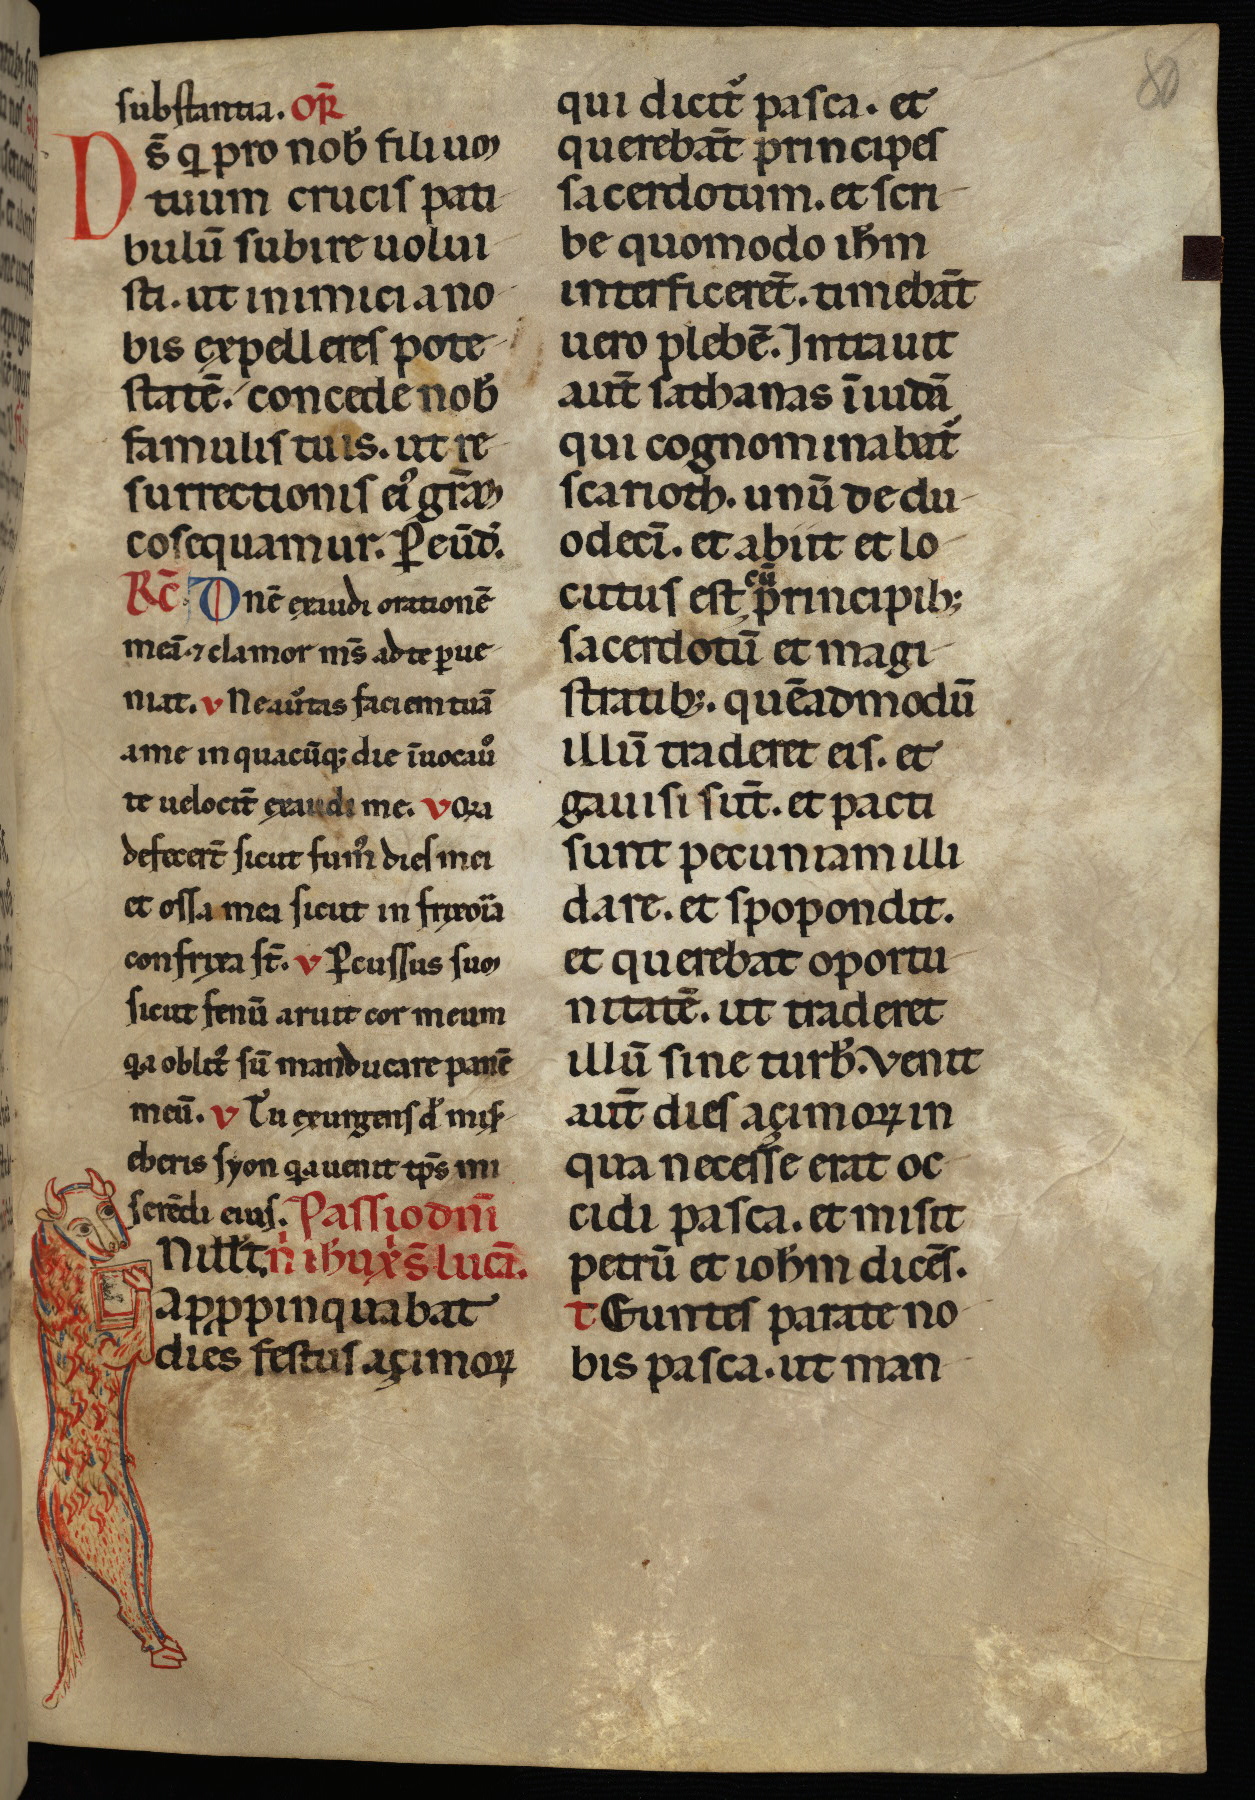 80
substantia. OR̄
Ds̄ q̄ pro nob̄ filium
tuum crucis pati
bulū subire uolui
sti. ut inimici a no
bis expelleres pote
statē. concede nob̄
famulis tuis. ut re
surrectionis ei᷒ grām
cōsequamur. P eūd̄.
Rc̄ Dn̄e exaudi orationē
meā ⁊ clamor ms̄ ad te ꝑue
niat. v Ne aūtas faciem tuā
a me in quacūq; die īuocau᷒o
te uelocit̄ exaudi me. v Q̄a
defecer̄t sicut fum᷒ dies mei
et ossa mea sicut in frixoriā
confrixa st̄. v Pcussus sum
sicut fenū aruit cor meum
q̄a oblit᷒ sū manducare panē
meū. v Tu exurgens d̄ mis
eberis syon q̄a uenit tp̄s mi
serēdi eius. Passio dn̄i
N illt̄. n̄ ih̄u xp̄i s̄ lucā.
Appꝓpinquabat
dies festus açimoꝝ
qui dicit᷒ pasca. et
querebāt principes
sacerdotum. et scri
be quomodo ih̄m
interficerēt. timebāt
uero plebē. Intrauit
aut̄ sathanas ī iudā
qui cognominabat᷒
scarioth. unū de du
odecī. et abiit et lo
cutus est cū principib;
sacerdotū et magi
stratib;. quēadmodū
illū traderet eis. et
gauisi sūt. et pacti
sunt pecuniam illi
dare. et spopondit.
et querebat oportu
nitatē. ut traderet
illū sine turb̄. Venit
aut̄ dies açimoꝝ in
qua necesse erat oc
cidi pasca. et misit
petrū et ioh̄m dicēs.
t Euntes parate no
bis pasca. ut man